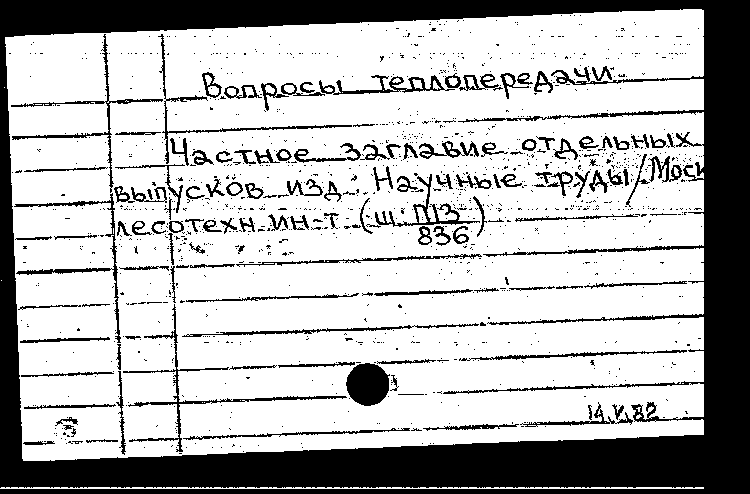 Вопросы теплопередачи.
Частное заглавие отдельных
выпусков изд.: Научные труды/Моск
лесотехн. ин-т (ш: П13
836)
14.V.82